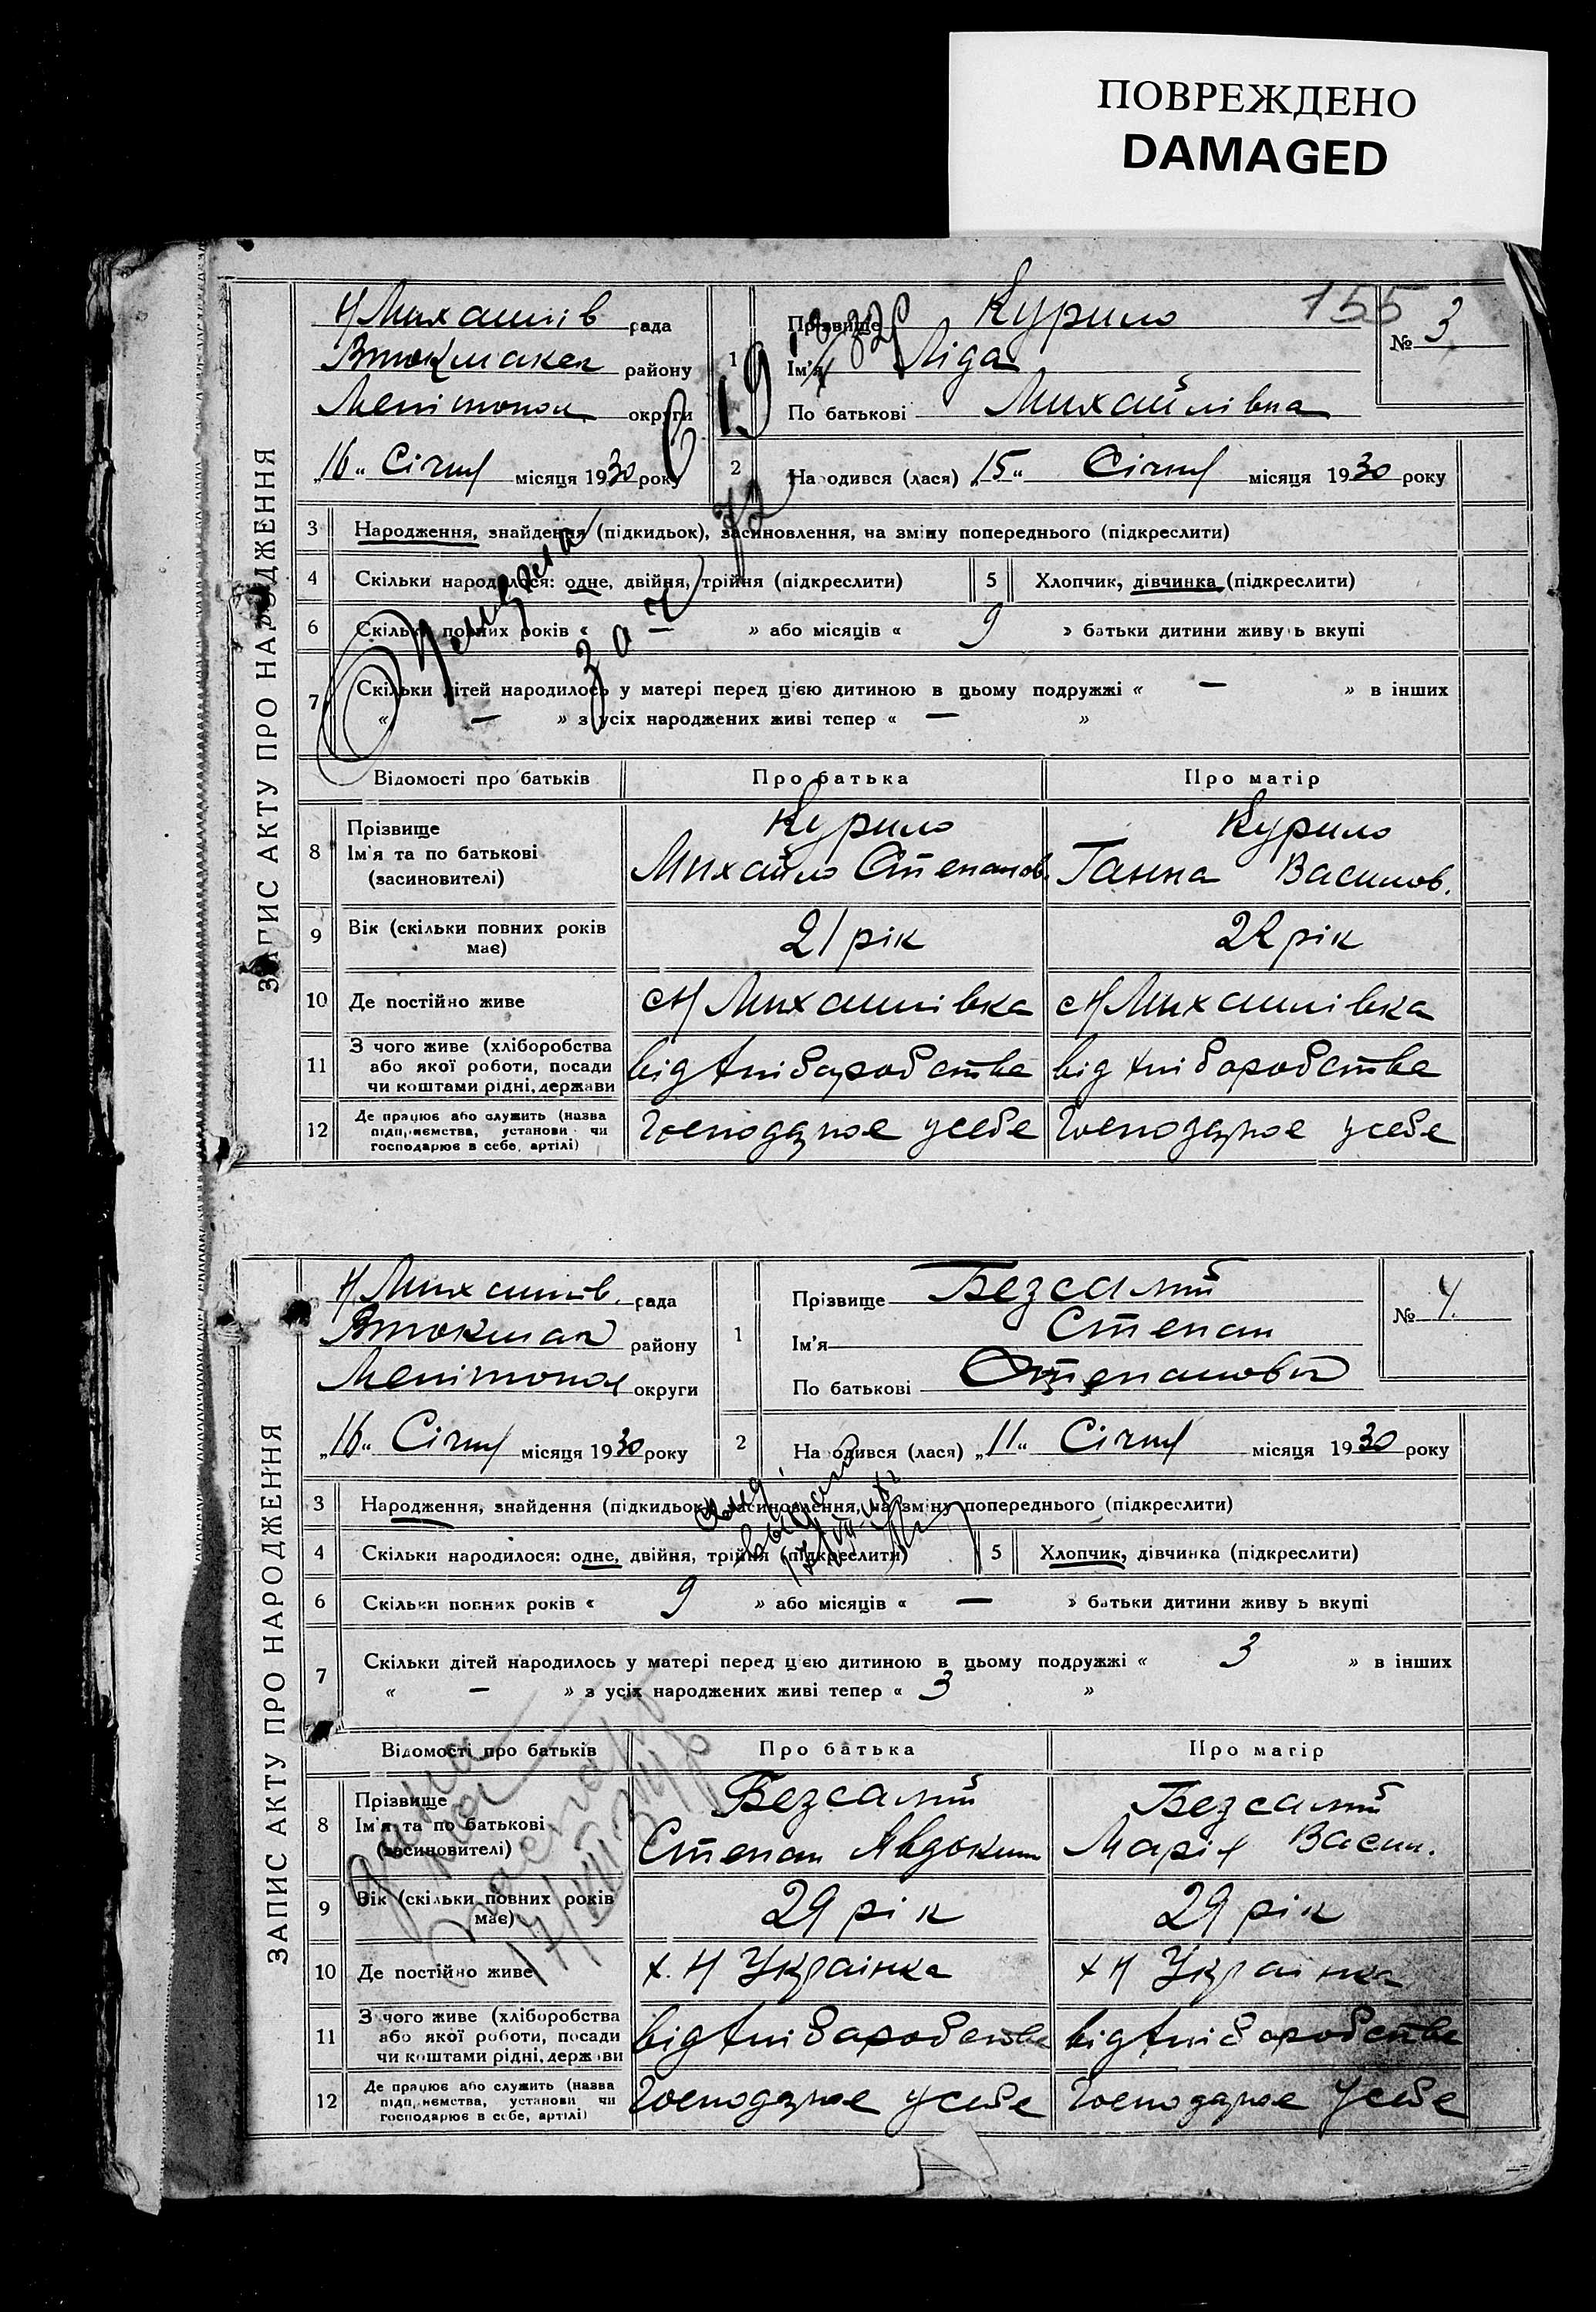 ПОВРЕЖДЕНО
DAMAGED
155
ЗАПИС АКТУ ПРО НАРОДЖЕННЯ
Н Михайлів рада
Втокмакск району
Мелітопол округи
„16“ Січня місяця 1930 року
1 Прізвище Курило
Ім'я Ліда
По батькові Михайлівна
№ 3
2 Народився (лася) „15“ Січня місяця 1930 року
3 Народження, знайдення (підкидьок), засиновлення, на зміну попереднього (підкреслити)
4 Скільки народилося: одне, двійня, трійня (підкреслити)
5 Хлопчик, дівчинка (підкреслити)
6 Скільки повних років « — » або місяців « 9 » батьки дитини живуть вкупі
7 Скільки дітей народилось у матері перед цією дитиною в цьому подружжі « — » в інших
« — » з усіх народжених живі тепер « — »
Відомості про батьків Про батька Про матір
8 Прізвище
Ім'я та по батькові
(засиновителі)
Курило
Михайло Степанов.
Курило
Ганна Васильов.
9 Вік (скільки повних років має) 21 рік 22 рік
10 Де постійно живе с Н Михайлівка с Н Михайлівка
11 З чого живе (хліборобства
або якої роботи, посади
чи коштами рідні, держави
від хліборобства від хліборобства
12 Де працює або служить (назва
підприємства, установи чи
господарює в себе, артілі)
Господарює у себе Господарює у себе
ЗАПИС АКТУ ПРО НАРОДЖЕННЯ
Н Михайлів. рада
Втокмак району
Мелітопол округи
„16“ Січня місяця 1930 року
1 Прізвище Безсалий
Ім'я Степан
По батькові Степанович
№ 4.
2 Народився (лася) „11“ Січня місяця 1930 року
3 Народження, знайдення (підкидьок), засиновлення, на зміну попереднього (підкреслити)
4 Скільки народилося: одне, двійня, трійня (підкреслити)
5 Хлопчик, дівчинка (підкреслити)
6 Скільки повних років « 9 » або місяців « — » батьки дитини живуть вкупі
7 Скільки дітей народилось у матері перед цією дитиною в цьому подружжі « 3 » в інших
« — » з усіх народжених живі тепер « 3 »
Відомості про батьків Про батька Про матір
8 Прізвище
Ім'я та по батькові
(засиновителі)
Безсалий
Степан Явдоким
Безсалий
Марія Васил.
9 Вік (скільки повних років має) 29 рік 29 рік
10 Де постійно живе х. Н Українка х Н Українка
11 З чого живе (хліборобства
або якої роботи, посади
чи коштами рідні, держави
від хліборобства від хліборобства
12 Де працює або служить (назва
підприємства, установи чи
господарює в себе, артілі)
Господарює у себе Господарює у себе